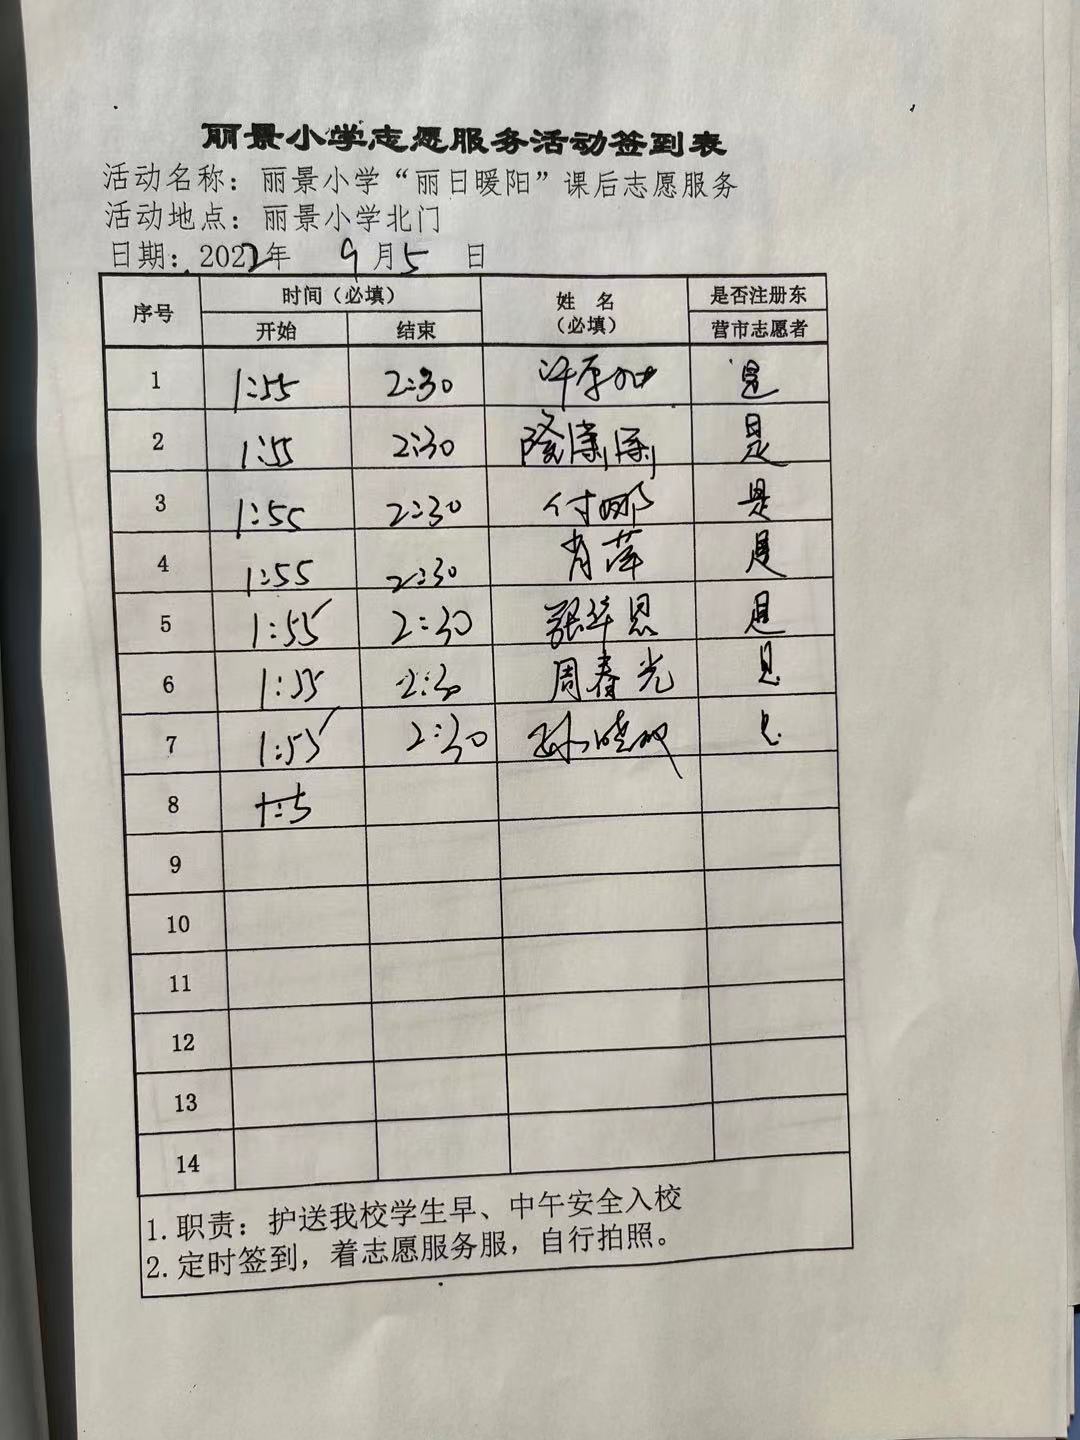 丽景小学志愿服务活动签到表
活动名称：丽景小学“丽日暖阳”课后志愿服务
活动地点：丽景小学北门
日期：2022年 9月5 日
序号 时间（必填） 姓 名（必填） 是否注册东营市志愿者
开始 结束
1 1:55 2:30 是
2 1:55 2:30 隆潇潇 是
3 1:55 2:30 付娜 是
4 1:55 2:30 肖萍 是
5 1:55 2:30 张华恩 是
6 1:55 2:30 周春光 是
7 1:55 2:30 是
8
9
10
11
12
13
14
1.职责：护送我校学生早、中午安全入校
2.定时签到，着志愿服务服，自行拍照。